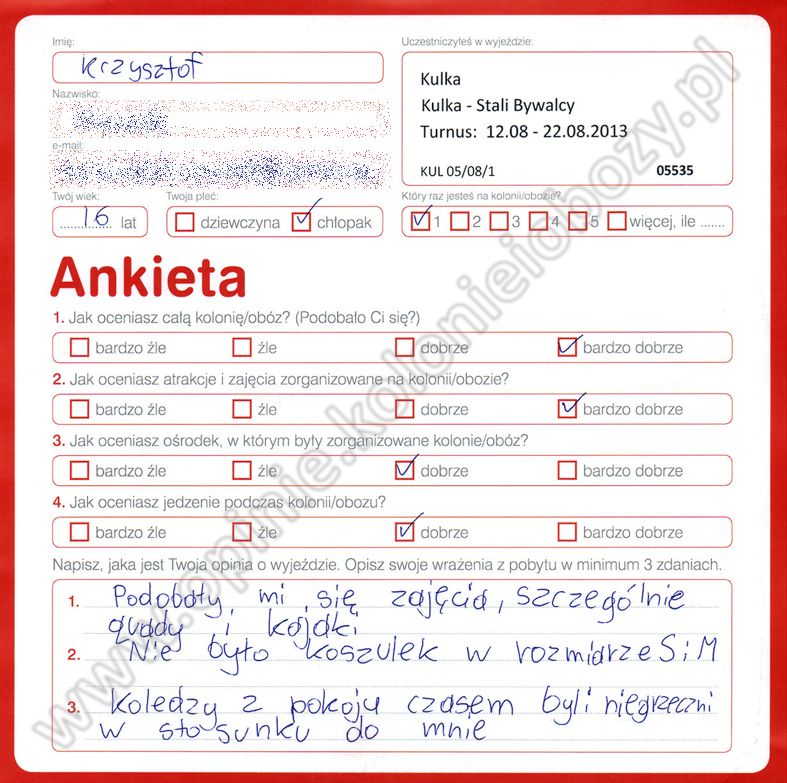 Imię:
Krzysztof
Nazwisko:
e-mail:
Twój wiek:
16 lat
Twoja płeć:
dziewczyna chłopak
Uczestniczyłeś w wyjeździe:
Kulka
Kulka - Stali Bywalcy
Turnus: 12.08 - 22.08.2013
KUL 05/08/1 05535
Który raz jesteś na kolonii/obozie?
1 2 3 4 5 więcej, ile .......
Ankieta
1. Jak oceniasz całą kolonię/obóz? (Podobało Ci się?)
bardzo źle źle dobrze bardzo dobrze
2. Jak oceniasz atrakcje i zajęcia zorganizowane na kolonii/obozie?
bardzo źle źle dobrze bardzo dobrze
3. Jak oceniasz ośrodek, w którym były zorganizowane kolonie/obóz?
bardzo źle źle dobrze bardzo dobrze
4. Jak oceniasz jedzenie podczas kolonii/obozu?
bardzo źle źle dobrze bardzo dobrze
Napisz, jaka jest Twoja opinia o wyjeździe. Opisz swoje wrażenia z pobytu w minimum 3 zdaniach.
1. Podobały mi się zajęcia, szczególnie
quady i kajaki
2. Nie było koszulek w rozmiarze S i M
3. Koledzy z pokoju czasem byli niegrzeczni
w stosunku do mnie
www.opinie.kolonieiobozy.pl